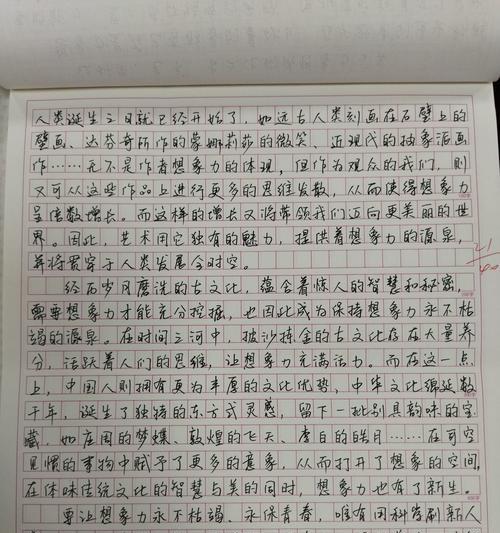 人类诞生之日就已经开始了，如远古人类刻画在石壁上的
壁画、达芬奇所作的蒙娜莉莎的微笑、近现代的抽象派画
作……无不是作者想象力的体现，但作为观众的我们，则
又可从这些作品上进行更多的思维发散，从而使得想象力
呈倍数增长。而这样的增长又将带领我们迈向更美丽的世
界。因此，艺术用它独有的魅力，提供着想象力的源泉，
并将贯穿于人类发展全时空。
经历岁月磨洗的古文化，蕴含着惊人的智慧和秘密，
需要想象力才能充分挖掘，也因此成为保持想象力永不枯
竭的源泉。在时间之河中，披沙拣金的古文化存在大量养
分，活跃着人们的思维，让想象力充满活力。而在这一点
上，中国人则拥有更为丰厚的文化优势，中华文化绵延数
千年，诞生了独特的东方式灵感，留下一批别具韵味的宝
藏，如庄周的梦蝶、敦煌的飞天、李白的皓月……在司空
见惯的事物中赋予了更多的意象，从而打开了想象的空间，
在体味传统文化的智慧与美的同时，想象力也有了新生。
要让想象力永不枯竭、永保青春，唯有用科学刷新人
21
40